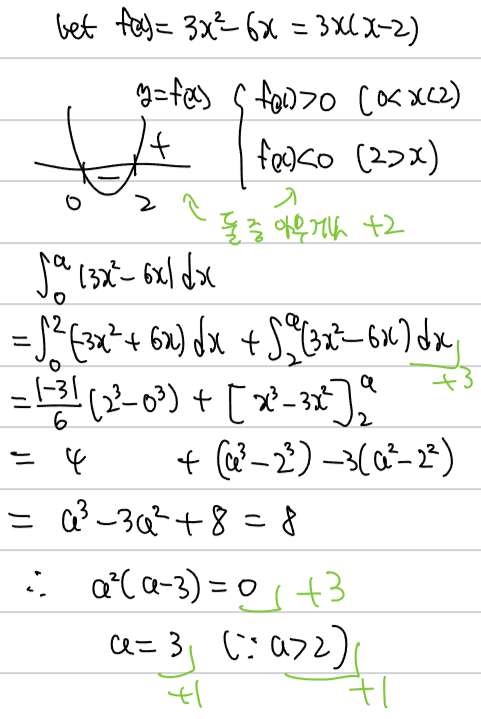 let f(x) = 3x² - 6x = 3x(x-2)
y=f(x) { f(x)>0 (0<x<2)
+ f(x)<0 (2>x)
−
0 2
둘 중 아무거나 +2
∫₀ᵃ |3x² - 6x| dx
= ∫₀² (-3x² + 6x) dx + ∫₂ᵃ (3x² - 6x) dx
+3
= |-3|/6 (2³ - 0³) + [x³ - 3x²]₂ᵃ
= 4 + (a³ - 2³) - 3(a² - 2²)
= a³ - 3a² + 8 = 8
∴ a²(a-3) = 0 +3
a = 3 (∵ a>2)
+1 +1